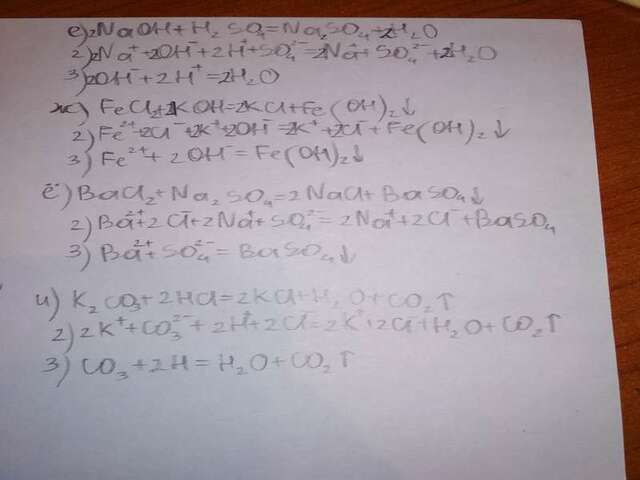 е) 2NaOH + H₂SO₄ = Na₂SO₄ + 2H₂O
2) 2Na⁺ + 2OH⁻ + 2H⁺ + SO₄²⁻ = 2Na⁺ + SO₄²⁻ + 2H₂O
3) 2OH⁻ + 2H⁺ = 2H₂O
ж) FeCl₂ + 2KOH = 2KCl + Fe(OH)₂↓
2) Fe²⁺ + 2Cl⁻ + 2K⁺ + 2OH⁻ = 2K⁺ + 2Cl⁻ + Fe(OH)₂↓
3) Fe²⁺ + 2OH⁻ = Fe(OH)₂↓
ё) BaCl₂ + Na₂SO₄ = 2NaCl + BaSO₄↓
2) Ba²⁺ + 2Cl⁻ + 2Na⁺ + SO₄²⁻ = 2Na⁺ + 2Cl⁻ + BaSO₄
3) Ba²⁺ + SO₄²⁻ = BaSO₄↓
и) K₂CO₃ + 2HCl = 2KCl + H₂O + CO₂↑
2) 2K⁺ + CO₃²⁻ + 2H⁺ + 2Cl⁻ = 2K⁺ + 2Cl⁻ + H₂O + CO₂↑
3) CO₃ + 2H = H₂O + CO₂↑